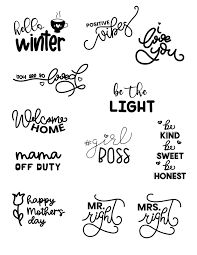 hello
winter
POSITIVE
vibes
i love
you
you are so loved
be the
LIGHT
Welcome
HOME
#girl
BOSS
be
KIND
be
SWEET
be
HONEST
mama
OFF DUTY
happy
Mothers
day
MR.
right
MRS.
right